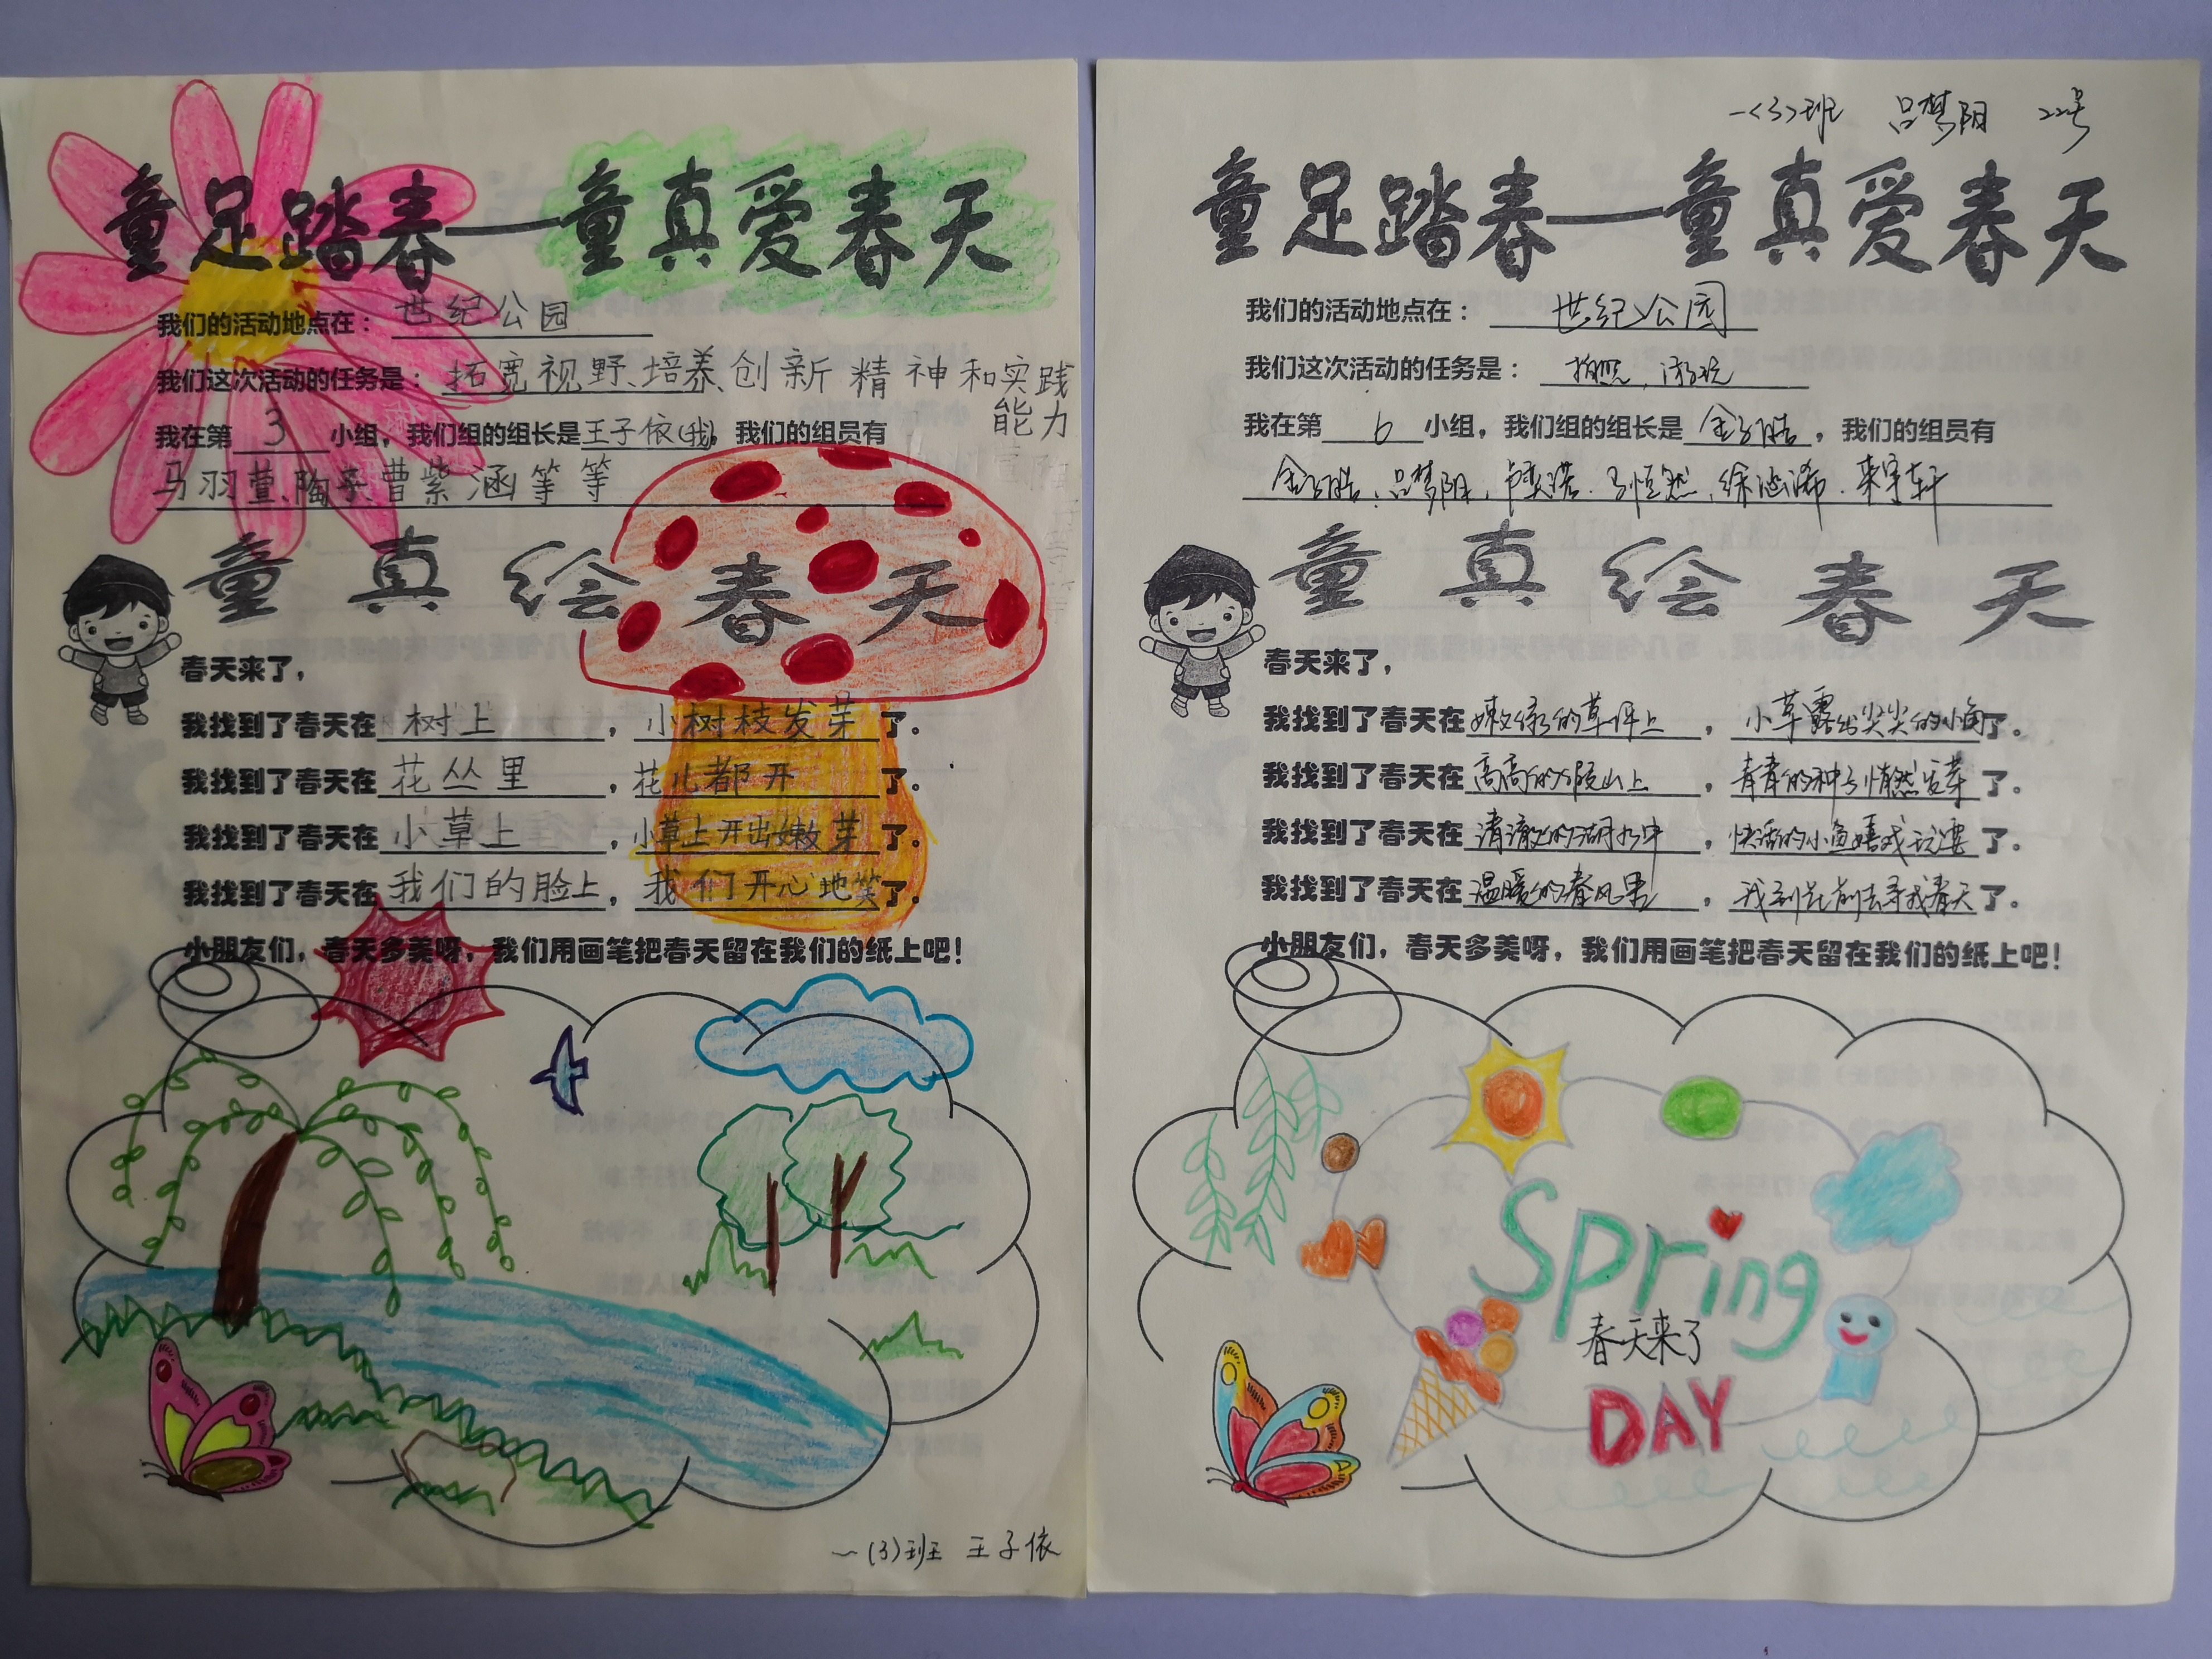 童足踏春——童真爱春天
我们的活动地点在：世纪公园
我们这次活动的任务是：拓宽视野、培养创新精神和实践
能力
我在第3小组，我们组的组长是王子依(我)，我们的组员有
马羽萱、陶乐、曹紫涵等等
童真绘春天
春天来了，
我找到了春天在树上，小树枝发芽了。
我找到了春天在花丛里，花儿都开了。
我找到了春天在小草上，小草上开出嫩芽了。
我找到了春天在我们的脸上，我们开心地笑了。
小朋友们，春天多美呀，我们用画笔把春天留在我们的纸上吧！
一(3)班 王子依
一<3>班 吕梦阳 22号
童足踏春——童真爱春天
我们的活动地点在：世纪公园
我们这次活动的任务是：拍照、游玩
我在第6小组，我们组的组长是，我们的组员有
吕梦阳、
童真绘春天
春天来了，
我找到了春天在嫩绿的草坪上，小草露出尖尖的小角了。
我找到了春天在高高的假山上，青青的种子悄然发芽了。
我找到了春天在清澈的湖水中，快活的小鱼嬉戏玩耍了。
我找到了春天在温暖的春风里，我到花前去寻找春天了。
小朋友们，春天多美呀，我们用画笔把春天留在我们的纸上吧！
Spring
春天来了
DAY